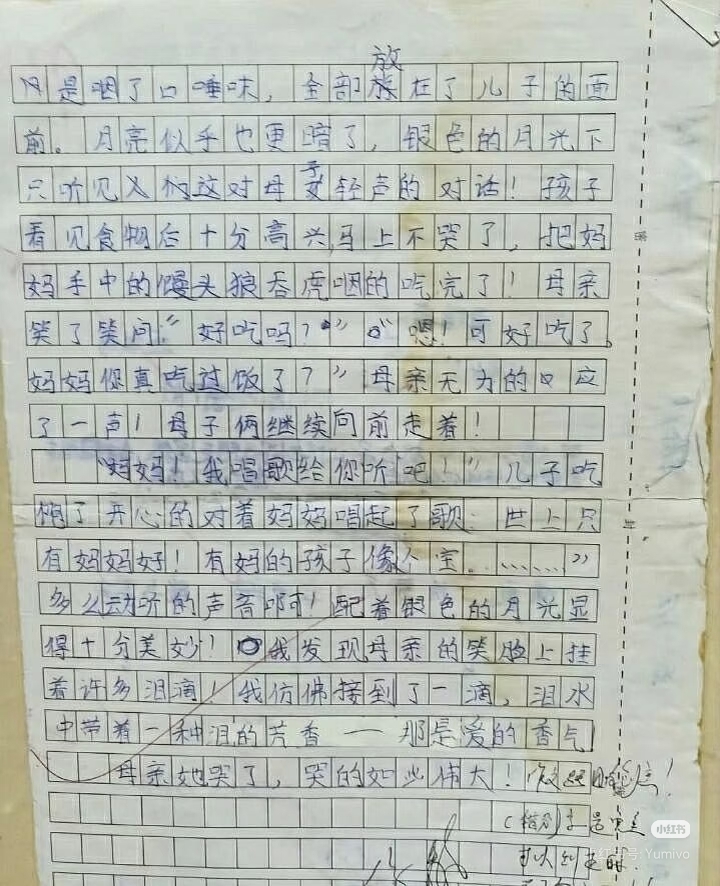 放
只是咽了口唾味，全部放在了儿子的面
前。月亮似乎也更暗了，银色的月光下
只听见人们这对母子轻声的对话！孩子
看见食物后十分高兴，马上不哭了，把妈
妈手中的馒头狼吞虎咽的吃完了！母亲
笑了笑问：“好吃吗？”“嗯！可好吃了。
妈妈你真吃过饭了？”母亲无为的回应
了一声！母子俩继续向前走着！
“妈妈！我唱歌给你听吧！”儿子吃
饱了开心的对着妈妈唱起了歌：世上只
有妈妈好！有妈的孩子像个宝。……”
多么动听的声音啊！配着银色的月光显
得十分美妙！我发现母亲的笑脸上挂
着许多泪滴！我仿佛接到了一滴，泪水
中带着一种泪的芳香——那是爱的香气
母亲她哭了，哭的如此伟大！
小红书
小红书号:Yumivo